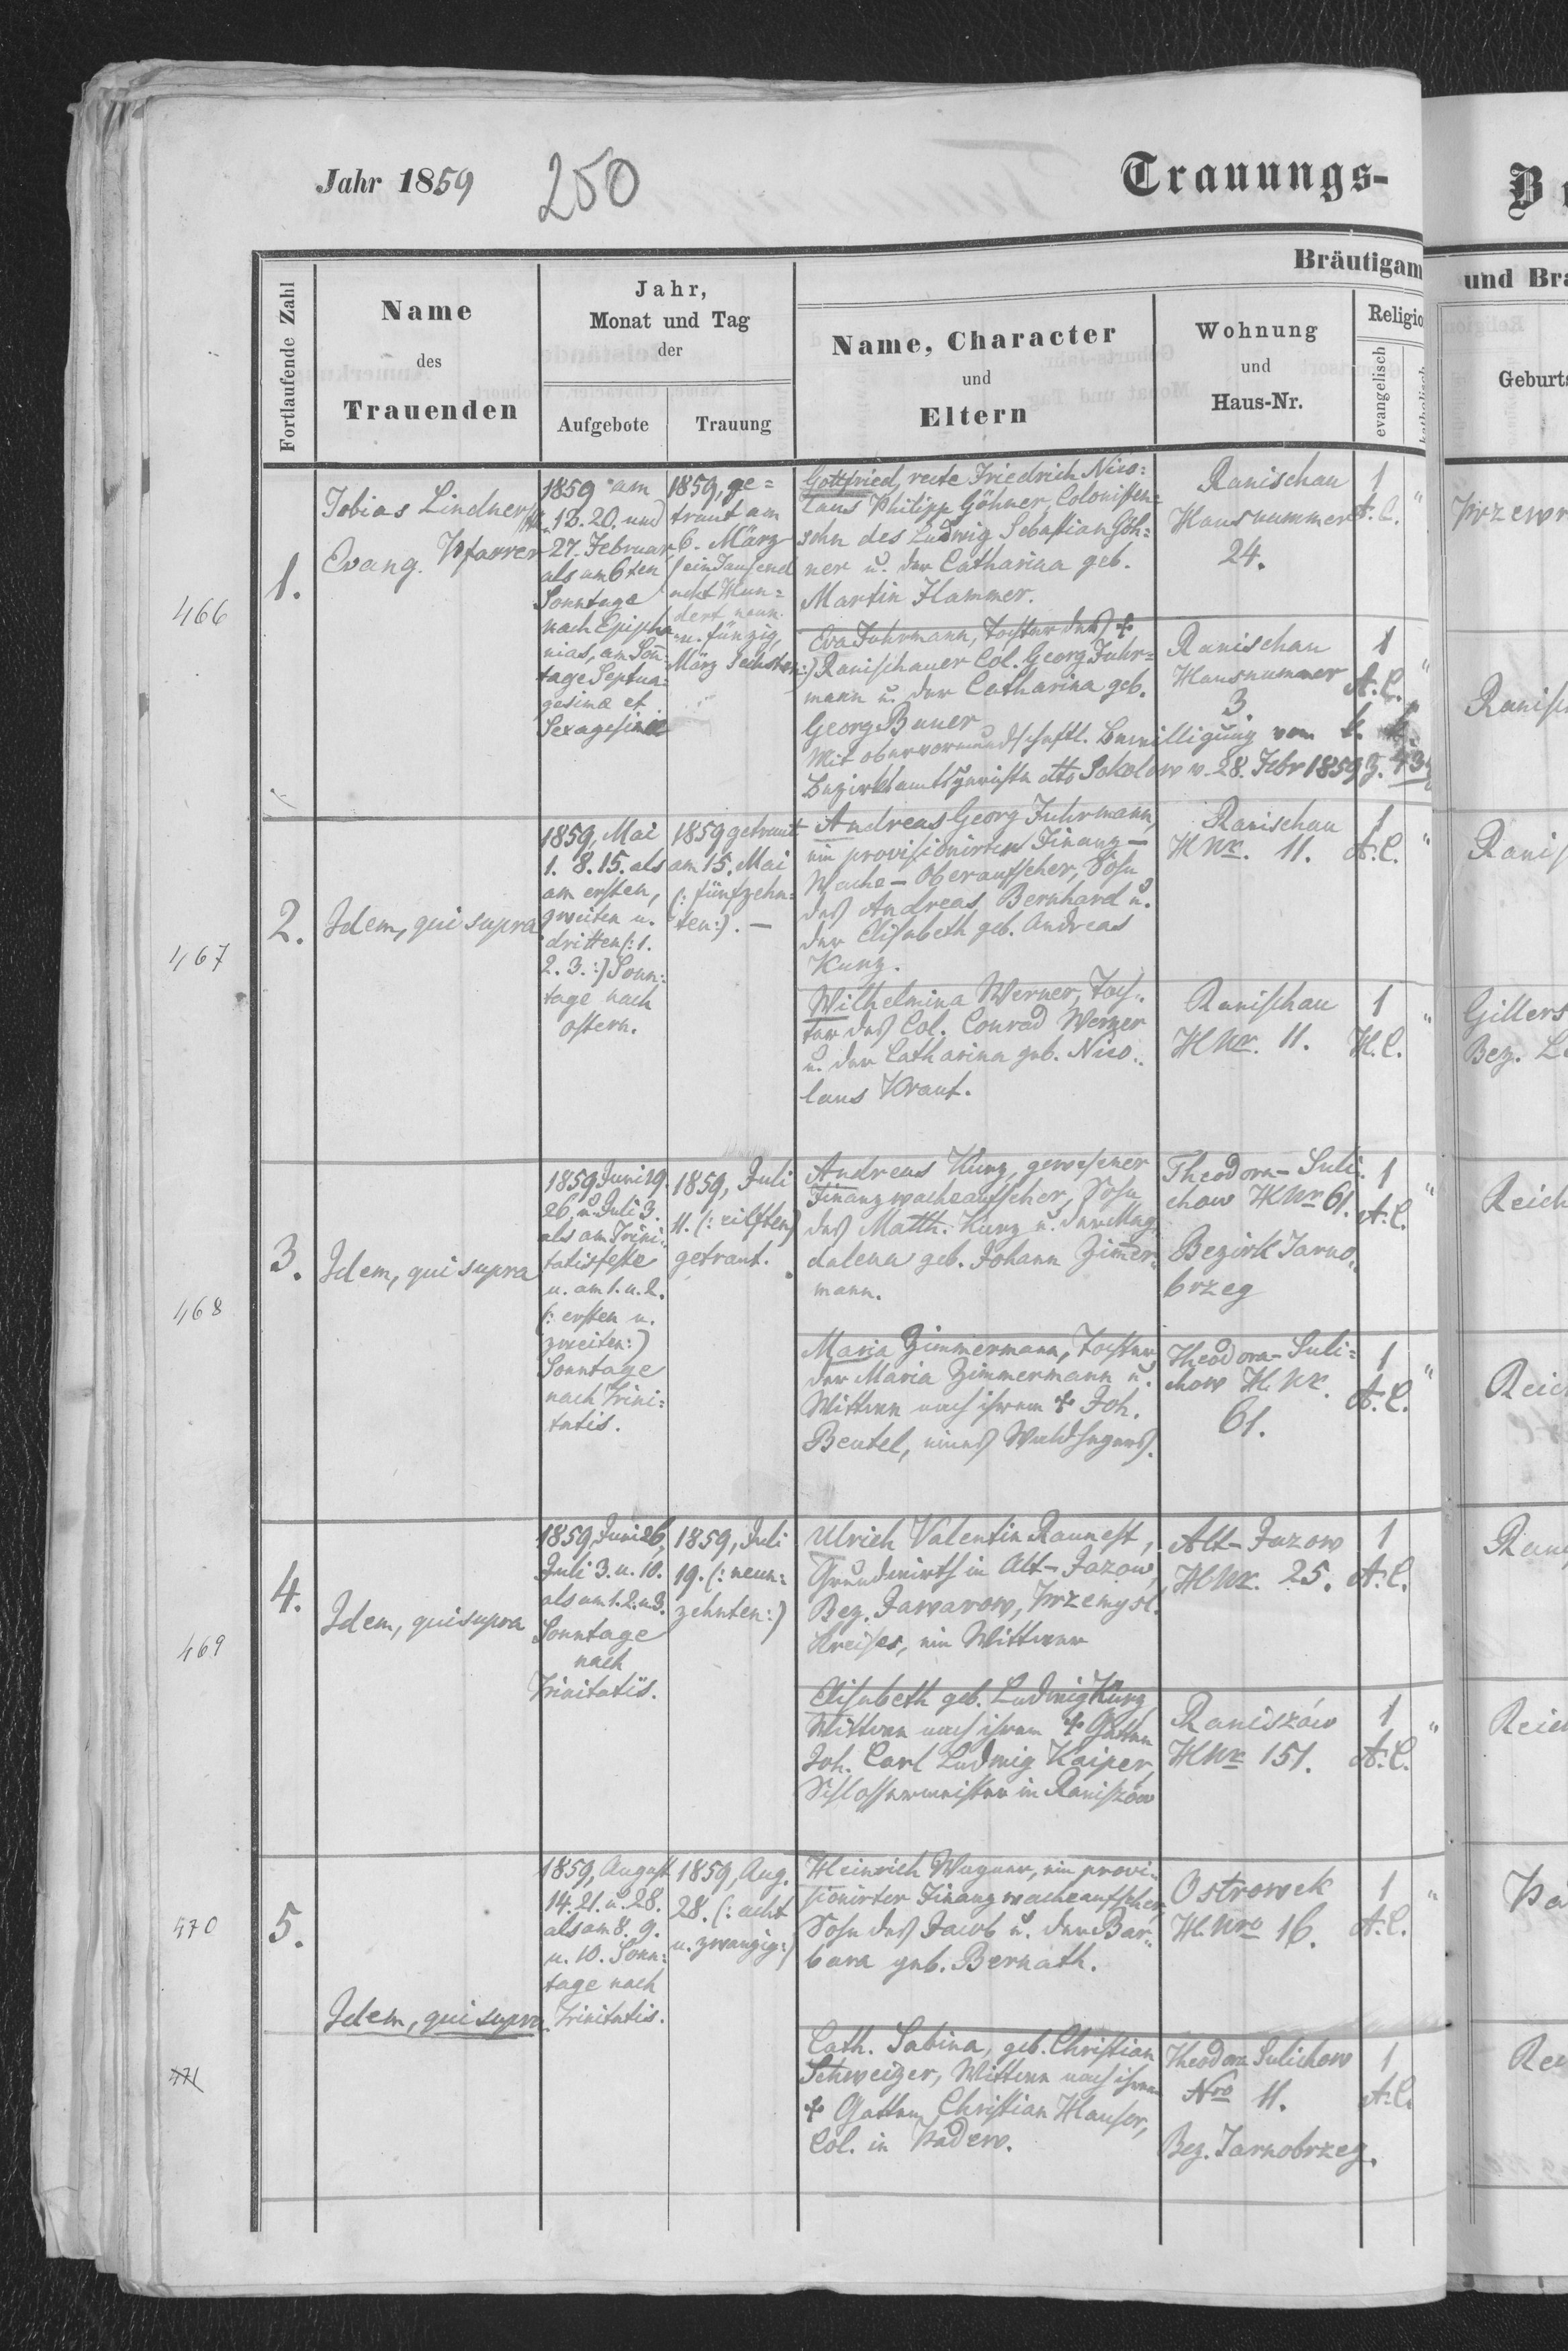 Jahr 1859
250
Trauungs-
Fortlaufende Zahl
Name
des
Trauenden
Jahr,
Monat und Tag
der
Aufgebote
Trauung
Bräutigam
Name, Character
und
Eltern
Wohnung
und
Haus-Nr.
Religio
evangelisch
katholisch
466
1.
Tobias Lindner
Evang. Pfarrer
1859 am
13. 20. und
27. Februar
als am 6ten
Sonntage
nach Epipha
nias, am Son̄
tage Septua-
gesimæ et
Sexagesimæ
1859, ge=
traut am
6. März
(ein Tausend
acht Hun=
dert neun
u. fünzig,
März Sechsten:)
Gottfried, recte Friedrich Nico=
laus Philipp Göhner, Colonisten=
sohn des Ludwig Sebastian Göh=
ner u. der Catharina geb.
Martin Hammer.
Ranischau
Hausnummer
24.
1
A. C.
Eva Fuhrmann, Tochter des ✝
Ranischauer Col. Georg Fuhr=
mann u. der Catharina geb.
Georg Bauer
Mit obervormundschaftl. Bewilligung vom k. k.
Bezirksamtsgerichte dto Sokolow v. 28. Febr 1859 Z.
Ranischau
Hausnummer
3.
1
A. C.
467
2.
Idem, qui supra
1859, Mai
1. 8. 15. als
am ersten,
zweiten u.
dritten (: 1.
2. 3. :) Sonn=
tage nach
Ostern.
1859 getraut
am 15. Mai
(: fünfzehn=
ten:). —
Andreas Georg Fuhrmann,
ein provisionirter Finanz-
Wache-Oberaufseher, Sohn
des Andreas Bernhard u.
der Elisabeth geb. Andreas
Kunz.
Ranischau
H Nr. 11.
1
A. C.
Wilhelmina Werner, Toch=
ter des Col. Conrad Werner
u. der Catharina geb. Nico=
laus Kraut.
Ranischau
H Nr. 11.
1
H. C.
468
3.
Idem, qui supra
1859 Juni 19.
26. u. Juli 3.
als am Trini=
tatisfeste
u. am 1. u. 2.
(: ersten u.
zweiten:)
Sonntage
nach Trini=
tatis.
1859, Juli
11. (: eilften)
getraut.
Andreas Kunz, gewesener
Finanzwacheaufseher, Sohn
des Matth. Kunz u. der Mag
dalena geb. Johann Zim̄er=
mann.
Theodora-Suli=
chow H Nr 61.
Bezirk Tarno=
brzeg
1
A. C.
Maria Zimmermann, Tochter
der Maria Zimmermann u.
Wittwe nach ihrem ✝ Joh.
Beutel, eines Waldhegers.
Theodora-Suli=
chow H. Nr.
61.
1
A. C.
469
4.
Idem, qui supra
1859, Juni 26,
Juli 3. u. 10.
als am 1. 2. u 3.
Sonntage
nach
Trinitatis.
1859, Juli
19. (: neun=
zehnten:)
Ulrich Valentin Raunest,
Grundwirth in Alt-Jazow,
Bez. Jaworow, Przemysl.
Kreises, ein Wittwer
Alt-Jazow
H Nr. 25.
1
A. C.
Elisabeth geb. Ludwig Kunz
Wittwe nach ihrem ✝ Gatten
Joh. Carl Ludwig Kaiper,
Schlossermeister in Raniszów
Raniszów
H Nr 151.
1
A. C.
470
5.
Idem, qui supra
1859, August
14. 21. u. 28.
als am 8. 9.
u. 10. Sonn=
tage nach
Trinitatis.
1859, Aug.
28. (: acht
u. zwanzig:)
Heinrich Wagner, ein provi=
sionirter Finanzwacheaufseher,
Sohn des Jacob u. der Bar=
bara geb. Bernath.
Ostrowek
H. Nro 16.
1
A. C.
471
Cath. Sabina, geb. Christian
Schweizer, Wittwe nach ihrem
✝ Gatten Christian Hauser,
Col. in Padew.
Theodora Sulichow
Nro 11.
Bez. Tarnobrzeg.
1
A. C.
und Bra
Geburts
Ranisch
Ranis
Gillers
Bez.
Reich
Reic
Reic
Pa